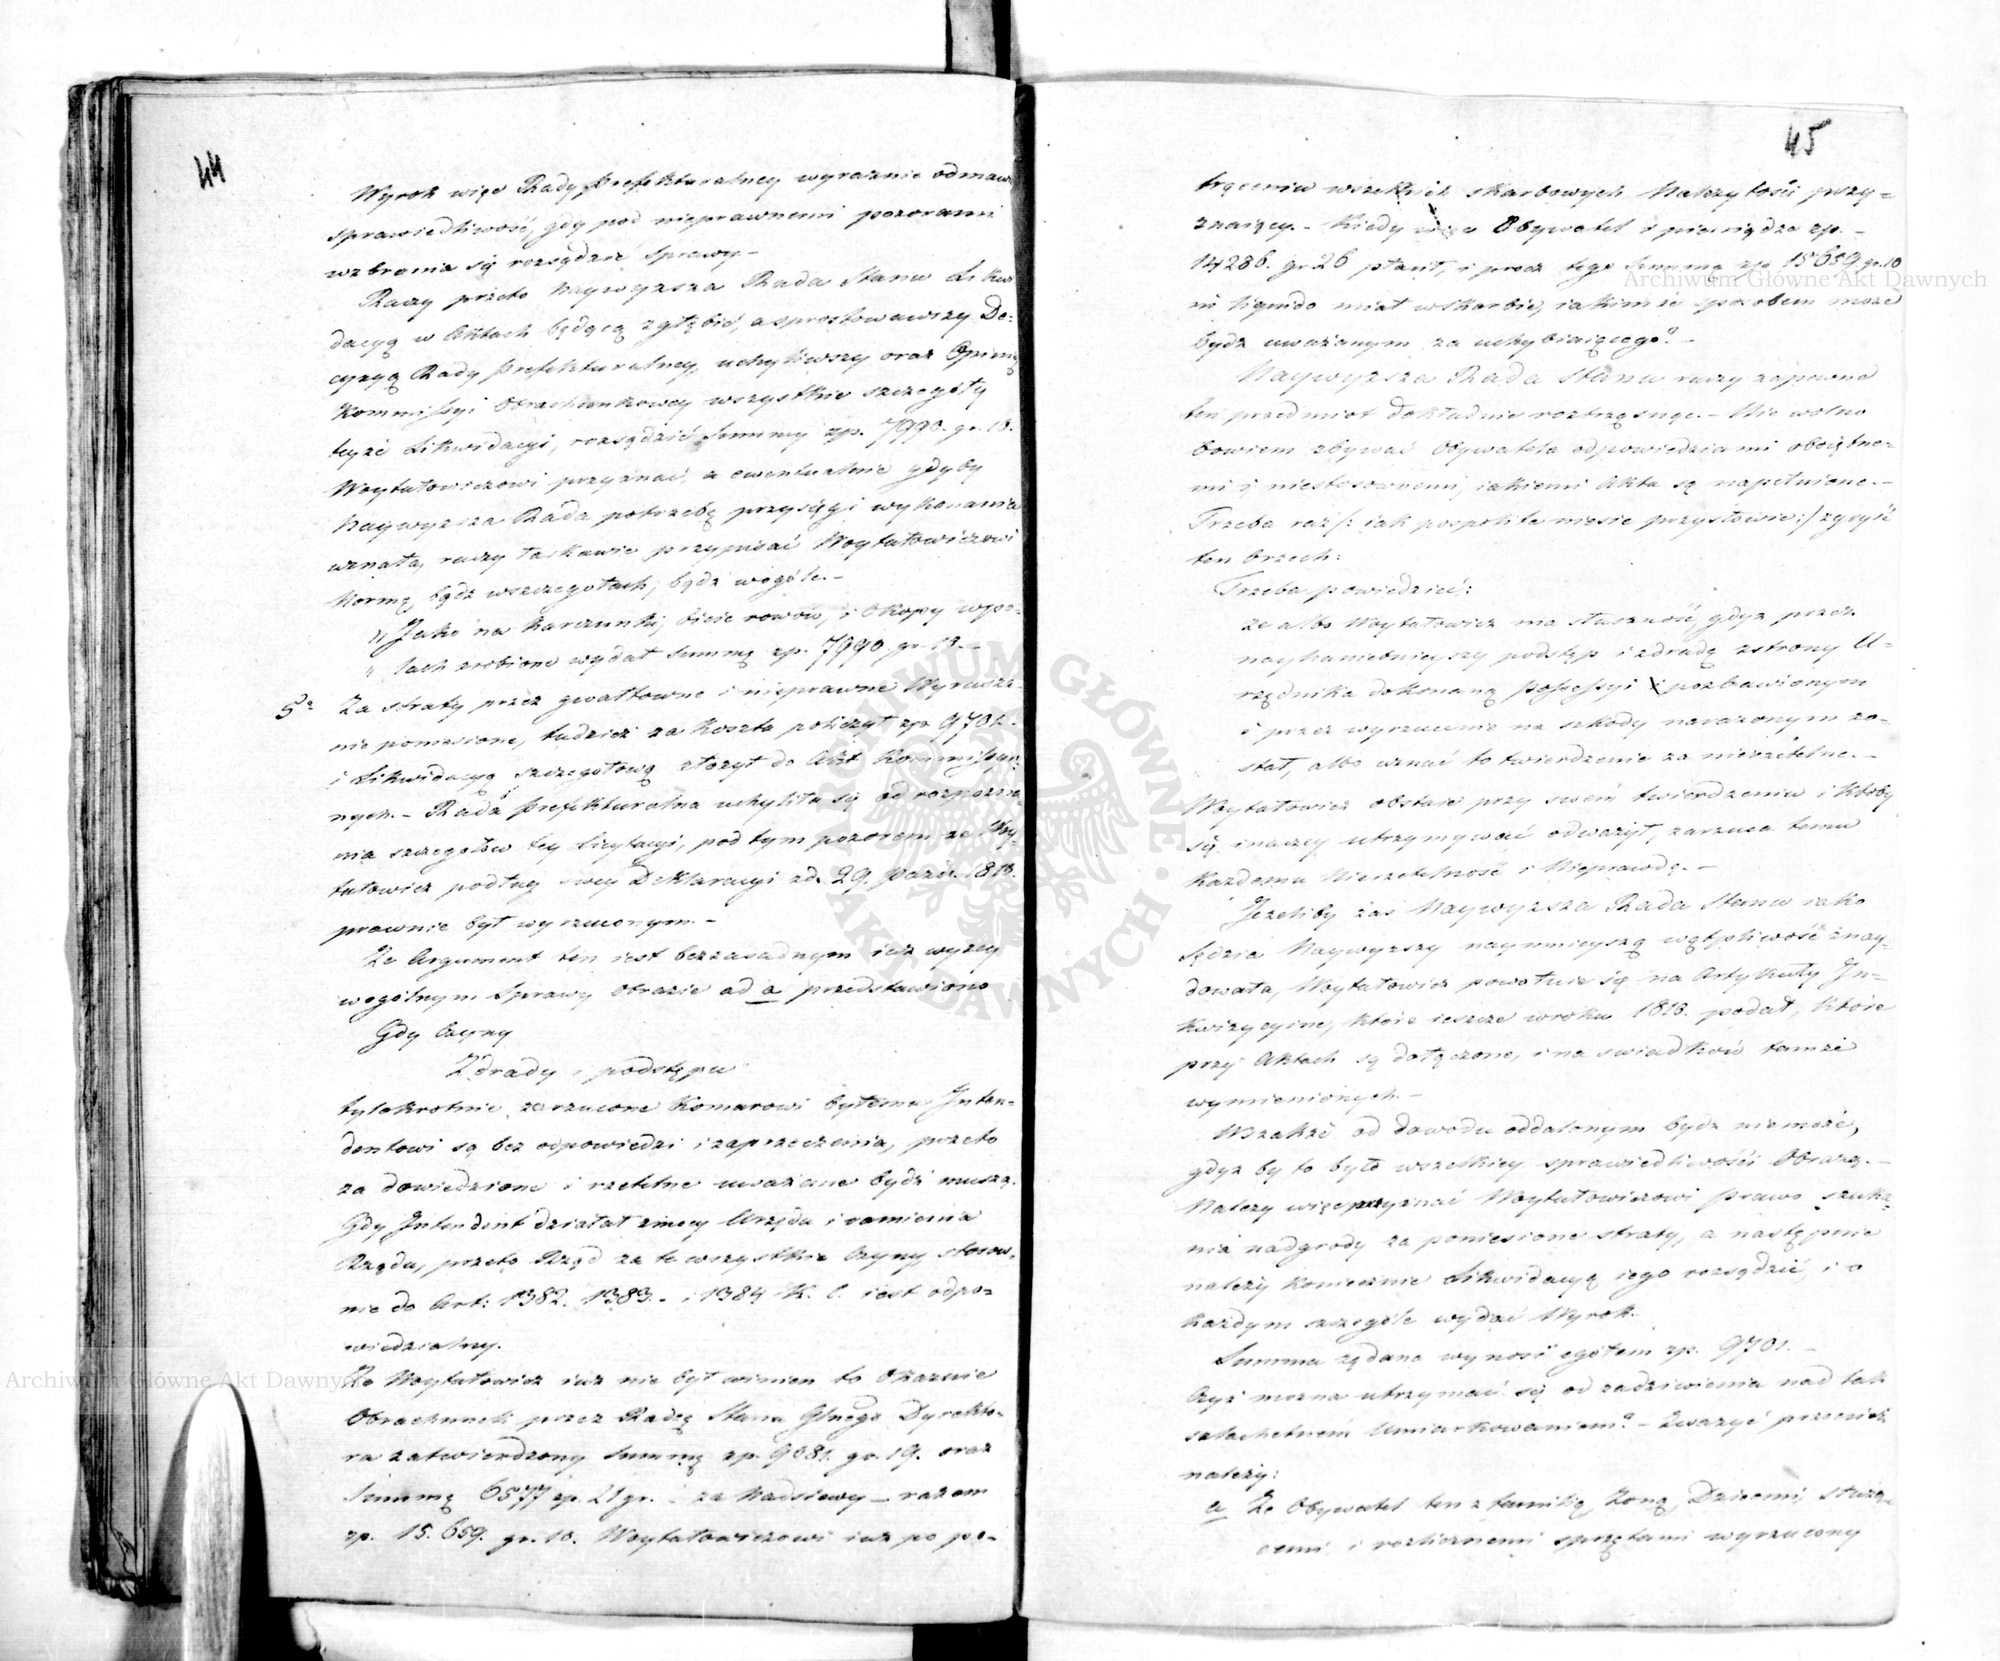 44
Wyrok więc Rady Prefekturalney wyraznie odmawia
sprawiedliwość, gdy pod nieprawnemi pozorami
wzbrania się rozsądzić Sprawy. -
Raczy przeto Naywyzsza Rada Stanu Likwi
dacyą w Aktach będącą zgłębić, a sprostowawszy De-
cyzyą Rady Prefekturalney, uchyliwszy oraz Opinią
Kommissyi Obrachunkowey wszystkie szczegóły
teyże Likwidacyi, rozsądzić Summy zp. 7990. gr. 18.
Woytatowiczowi przyznać, a ewentualnie gdyby
Naywyzsza Rada potrzebę przysięgi wykonania
uznała, raczy łaskawie przypisać Woytatowiczowi
Normę, bądz wszczegołach, bądź wogóle. -
„ Jako na Karczunki, bicie rowów, i Okopy wpo-
„ lach zrobione wydał Summę zp. 7990. gr. 18. -
5o Za straty przez gwałtowne i nieprawne Wyrusze-
nie poniesione, tudzież za Koszta policzył zp. 9701. -
i Likwidacyą szczegołową złożył do Akt Kommissyi-
nych. - Rada Prefekturalna uchyliła się od rozpozna-
nia szczegołów tey Licytacyi, pod tym pozorem ze Woy-
tatowicz podług swey Deklaracyi zd. 29. Paźdz. 1813.
prawnie był wyrzuconym. -
Ze Argument ten iest bezzasadnym iuz wyzey
wogólnym Sprawy Obrazie ad a przedstawiono
Gdy Czyny
Zdrady i podstępu
tylokrotnie zarzucone Komarowi byłemu Inten-
dentowi są bez odpowiedzi i zaprzeczenia, przeto
za dowiedzione i rzetelne uważane bydź muszą.
Gdy Intendent działał zmocy Urzędu i ramienia
Rządu, przeto Rząd za te wszystkie Czyny, stosow-
nie do Art: 1382. 1383. - i 1384 K. C. iest odpo-
wiedzialny.
Ze Woytatowicz iuz nie był winien to Okazuie
Obrachunek przez Radcę Stanu Głnego Dyrekto-
ra zatwierdzony Summę zp. 9081. gr. 19. oraz
Summę 6577 zp. 21 gr. - za Nadsiewy - razem
zp. 15.659. gr. 10. Woytatowiczowi iuz po po-
45
trąceniu wszelkich skarbowych Należytości przy-
znaiący. - Kiedy więc Obywatel i pieniądze zp. -
14286. gr 26 płacił, i procz tego Summę zp. 15659 gr. 10
in liquido miał wskarbie, iakimże sposobem może
bydz uważanym za uchybiaiącego? -
Naywyzsza Rada Stanu raczy zapewne
ten przedmiot dokładnie roztrząsnąc. - Nie wolno
bowiem zbywać Obywatela odpowiedziami obojętne-
mi i niestosownemi, iakiemi Akta są napełnione. -
Trzeba raz /: iak pospolite niesie przysłowie :/ zgryźć
ten Orzech:
Trzeba powiedzieć:
ze albo Woytatowicz ma słuszność, gdyz przez
nayhaniebnieyszy podstęp i zdradę zstrony U-
rzędnika dokonaną Possessyi pozbawionym
i przez wyrzucenie na szkody narażonym zo-
stał, albo uznać to twierdzenie za nierzetelne. -
Woytatowicz obstaie przy swém twierdzeniu i Ktoby
się inaczey utrzymywać odważył, zarzuca temu
Każdemu Nierzetelność i Nieprawdę. -
Jeżeliby zaś Naywyzsza Rada Stanu iako
Sędzia Naywyzszy naymnieyszą wątpliwość znay-
dowała, Woytatowicz powołuie się na Artykuły In-
kwizycyine, które ieszcze wroku 1818. podał, które
przy Aktach są dołączone, i na swiadków tamże
wymienionych. -
Wszakże od dowodu oddalonym bydz niemoże,
gdyz by to było wszelkiey sprawiedliwości Obrazą. -
Należy więc przyznać Woytatowiczowi prawo szuka-
nia nadgrody za poniesione straty, a następnie
należy koniecznie Likwidacyą iego rozsądzić, i o
każdym szczególe wydać Wyrok.
Summa żądana wynosi ogółem zp. 9701. -
Czyz można utrzymać się od zadziwienia nad tak
szlachetném Umiarkowaniem? - Zważyć przeciez
należy:
a Ze Obywatel ten z familią, Zoną, Dziecmi, służą-
cemi i rozlicznemi sprzętami wyrzucony
Archiwum Główne Akt Dawnych
Archiwum Główne Akt Dawnych
ARCHIWUM GŁÓWNE AKT DAWNYCH